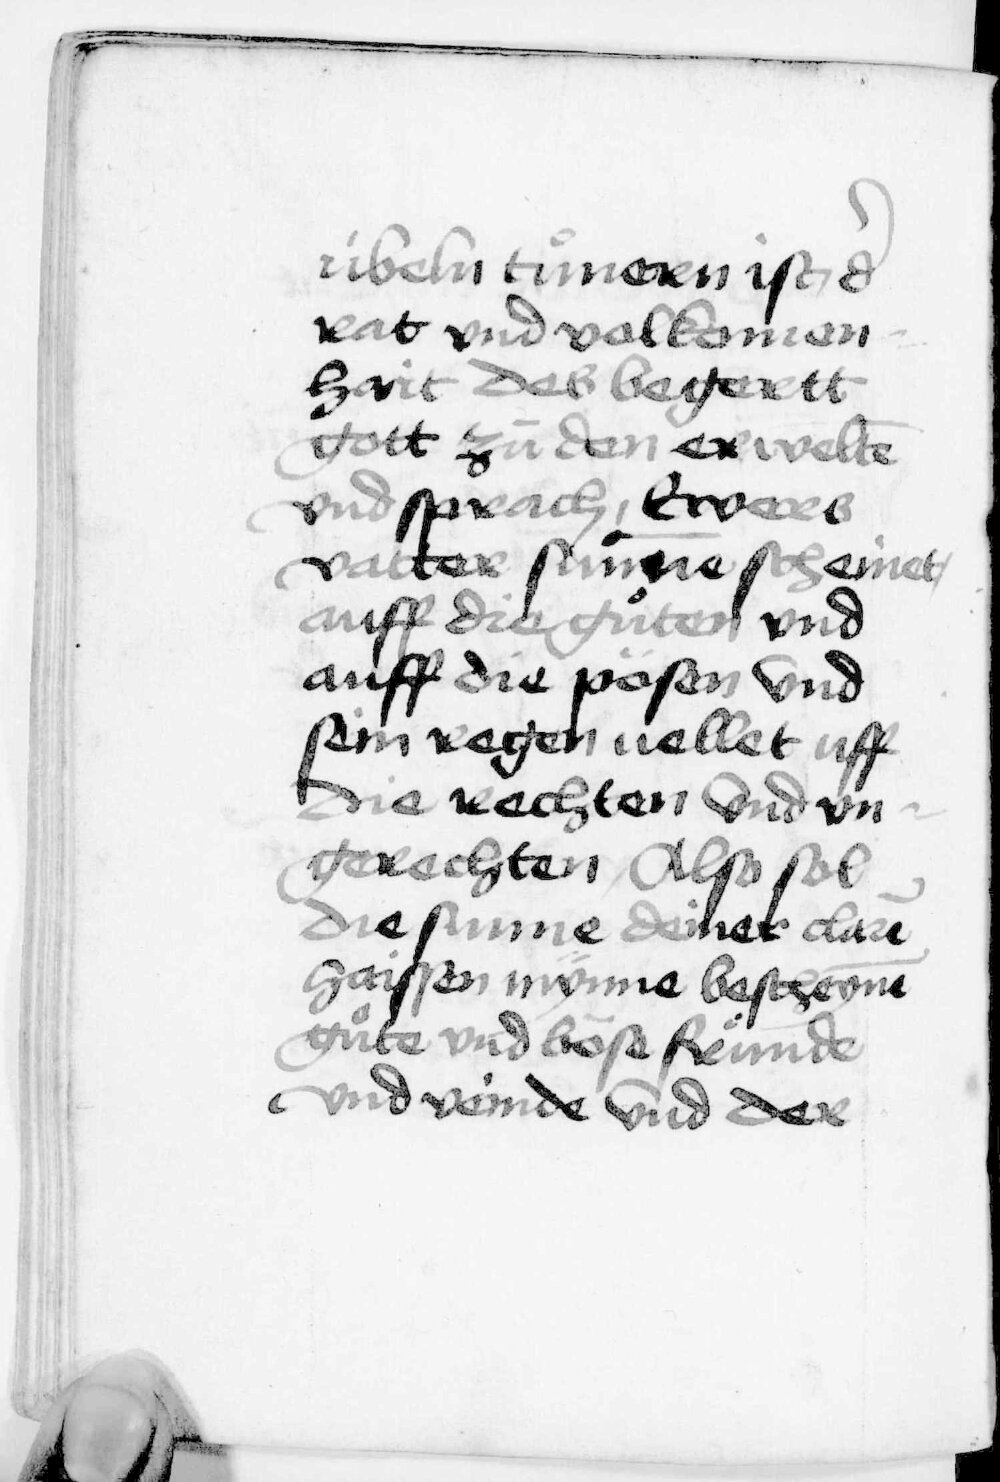 übeln tůnern ist, d̕
rat vnd volkomen-
hait des begertt
gott zů den erwelte̅
vnd sprach, Ewers
vatter sun̅ne scheinet/
auff die gůten vnd
auff die pösen vnd
sein regen uellet uff
die rechten vnd vn-
gerechten Also sol
die sunne deiner clare̅
haissen mynne bescheyne̅
gůte vnd böse freünde
vnd veinde vnd der